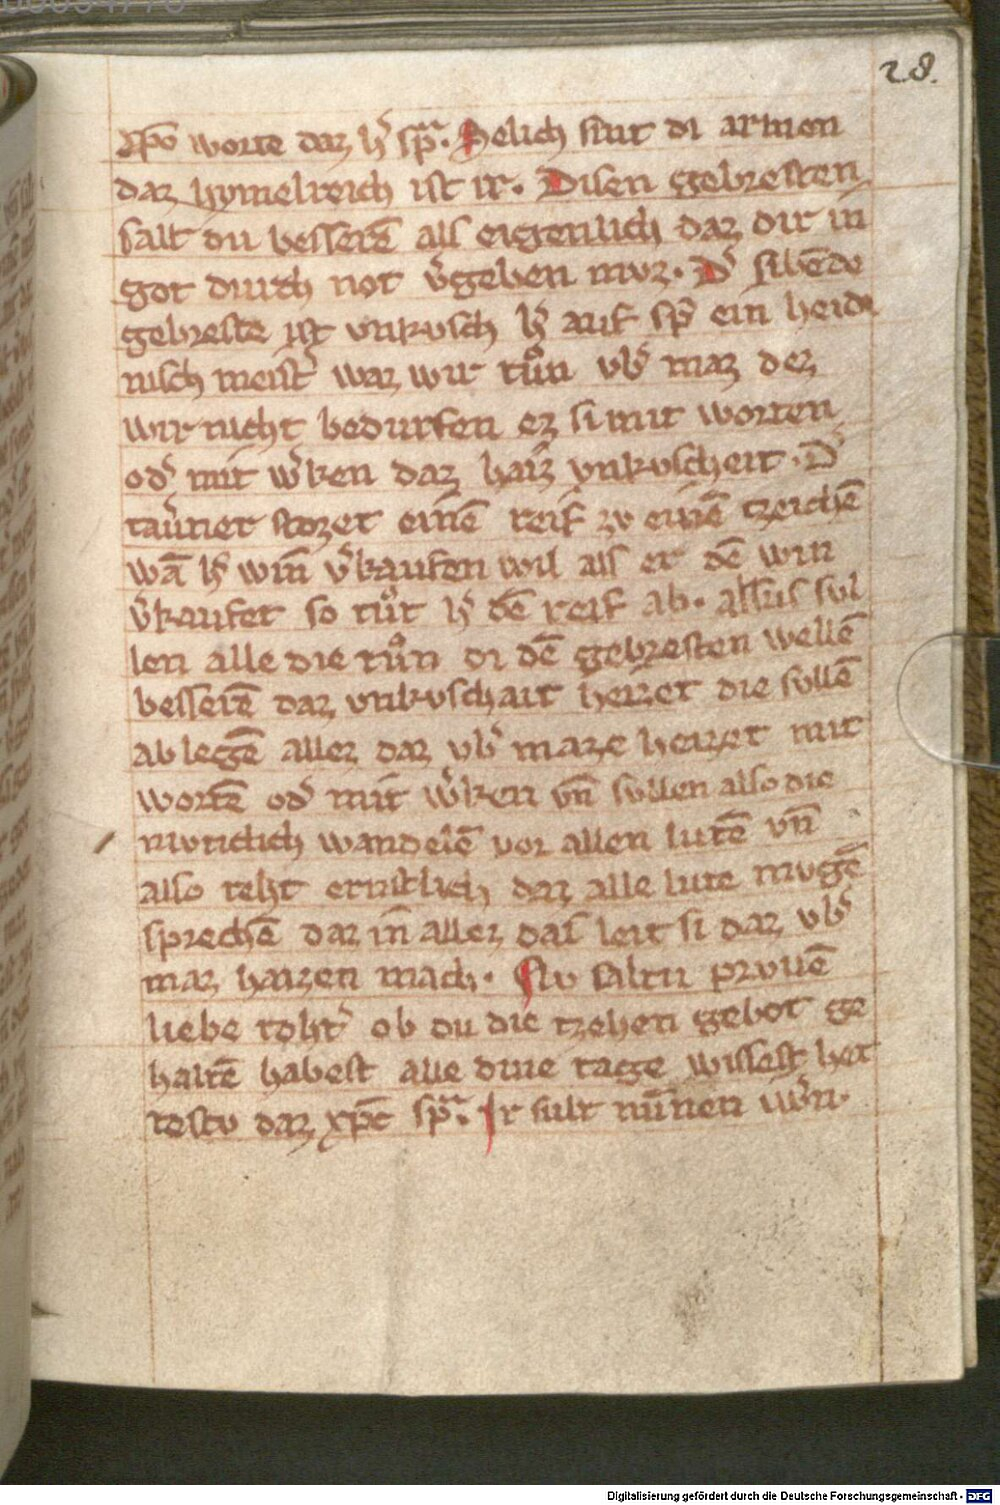 28.
xp̄o worte daz h̓ sp̄ᵃ. Selich sint di armen
daz hymelreich ist ir. Disen gebresten
salt du besserē als eigenlich daz dir in
got durch not v̓geben mvz. D̓ sibēde
gebreste ist vnkvsch h̓ auf sp̓ ein heide
nisch meist̓ waz wir tůn vb̓ maz dez
wir nicht bedurfen ez si mit worten
od̓ mit w̓ken daz haiz vnkvscheit. D̓
tav̓net stozet einē reif zv einē tzeichē
wā h̓ win v̓kaufen wil als er dē win
v̓kaufet so tůt h̓ dē reif ab. alsus sul
len alle die tůn di dē gebresten wellē
besserē daz vnkvschait heizet die sullē
ab legē allez daz vb̓ maze heizet mit
wortē od̓ mit w̓ken vn̄ sullen also die
wandelē vor allen lutē vn̄
also reht ernstlich daz alle lute mvgē
sprechē daz in allez daz leit si daz vb̓
maz haizen mach. Nv saltu prvuē
liebe toht̓ ob du die tzehen gebot ge
haltē habest alle dine tage wissest het
testv daz xp̄c sp̄ᵃ. Ir sult minnen
Digitalisierung gefördert durch die Deutsche Forschungsgemeinschaft - DFG